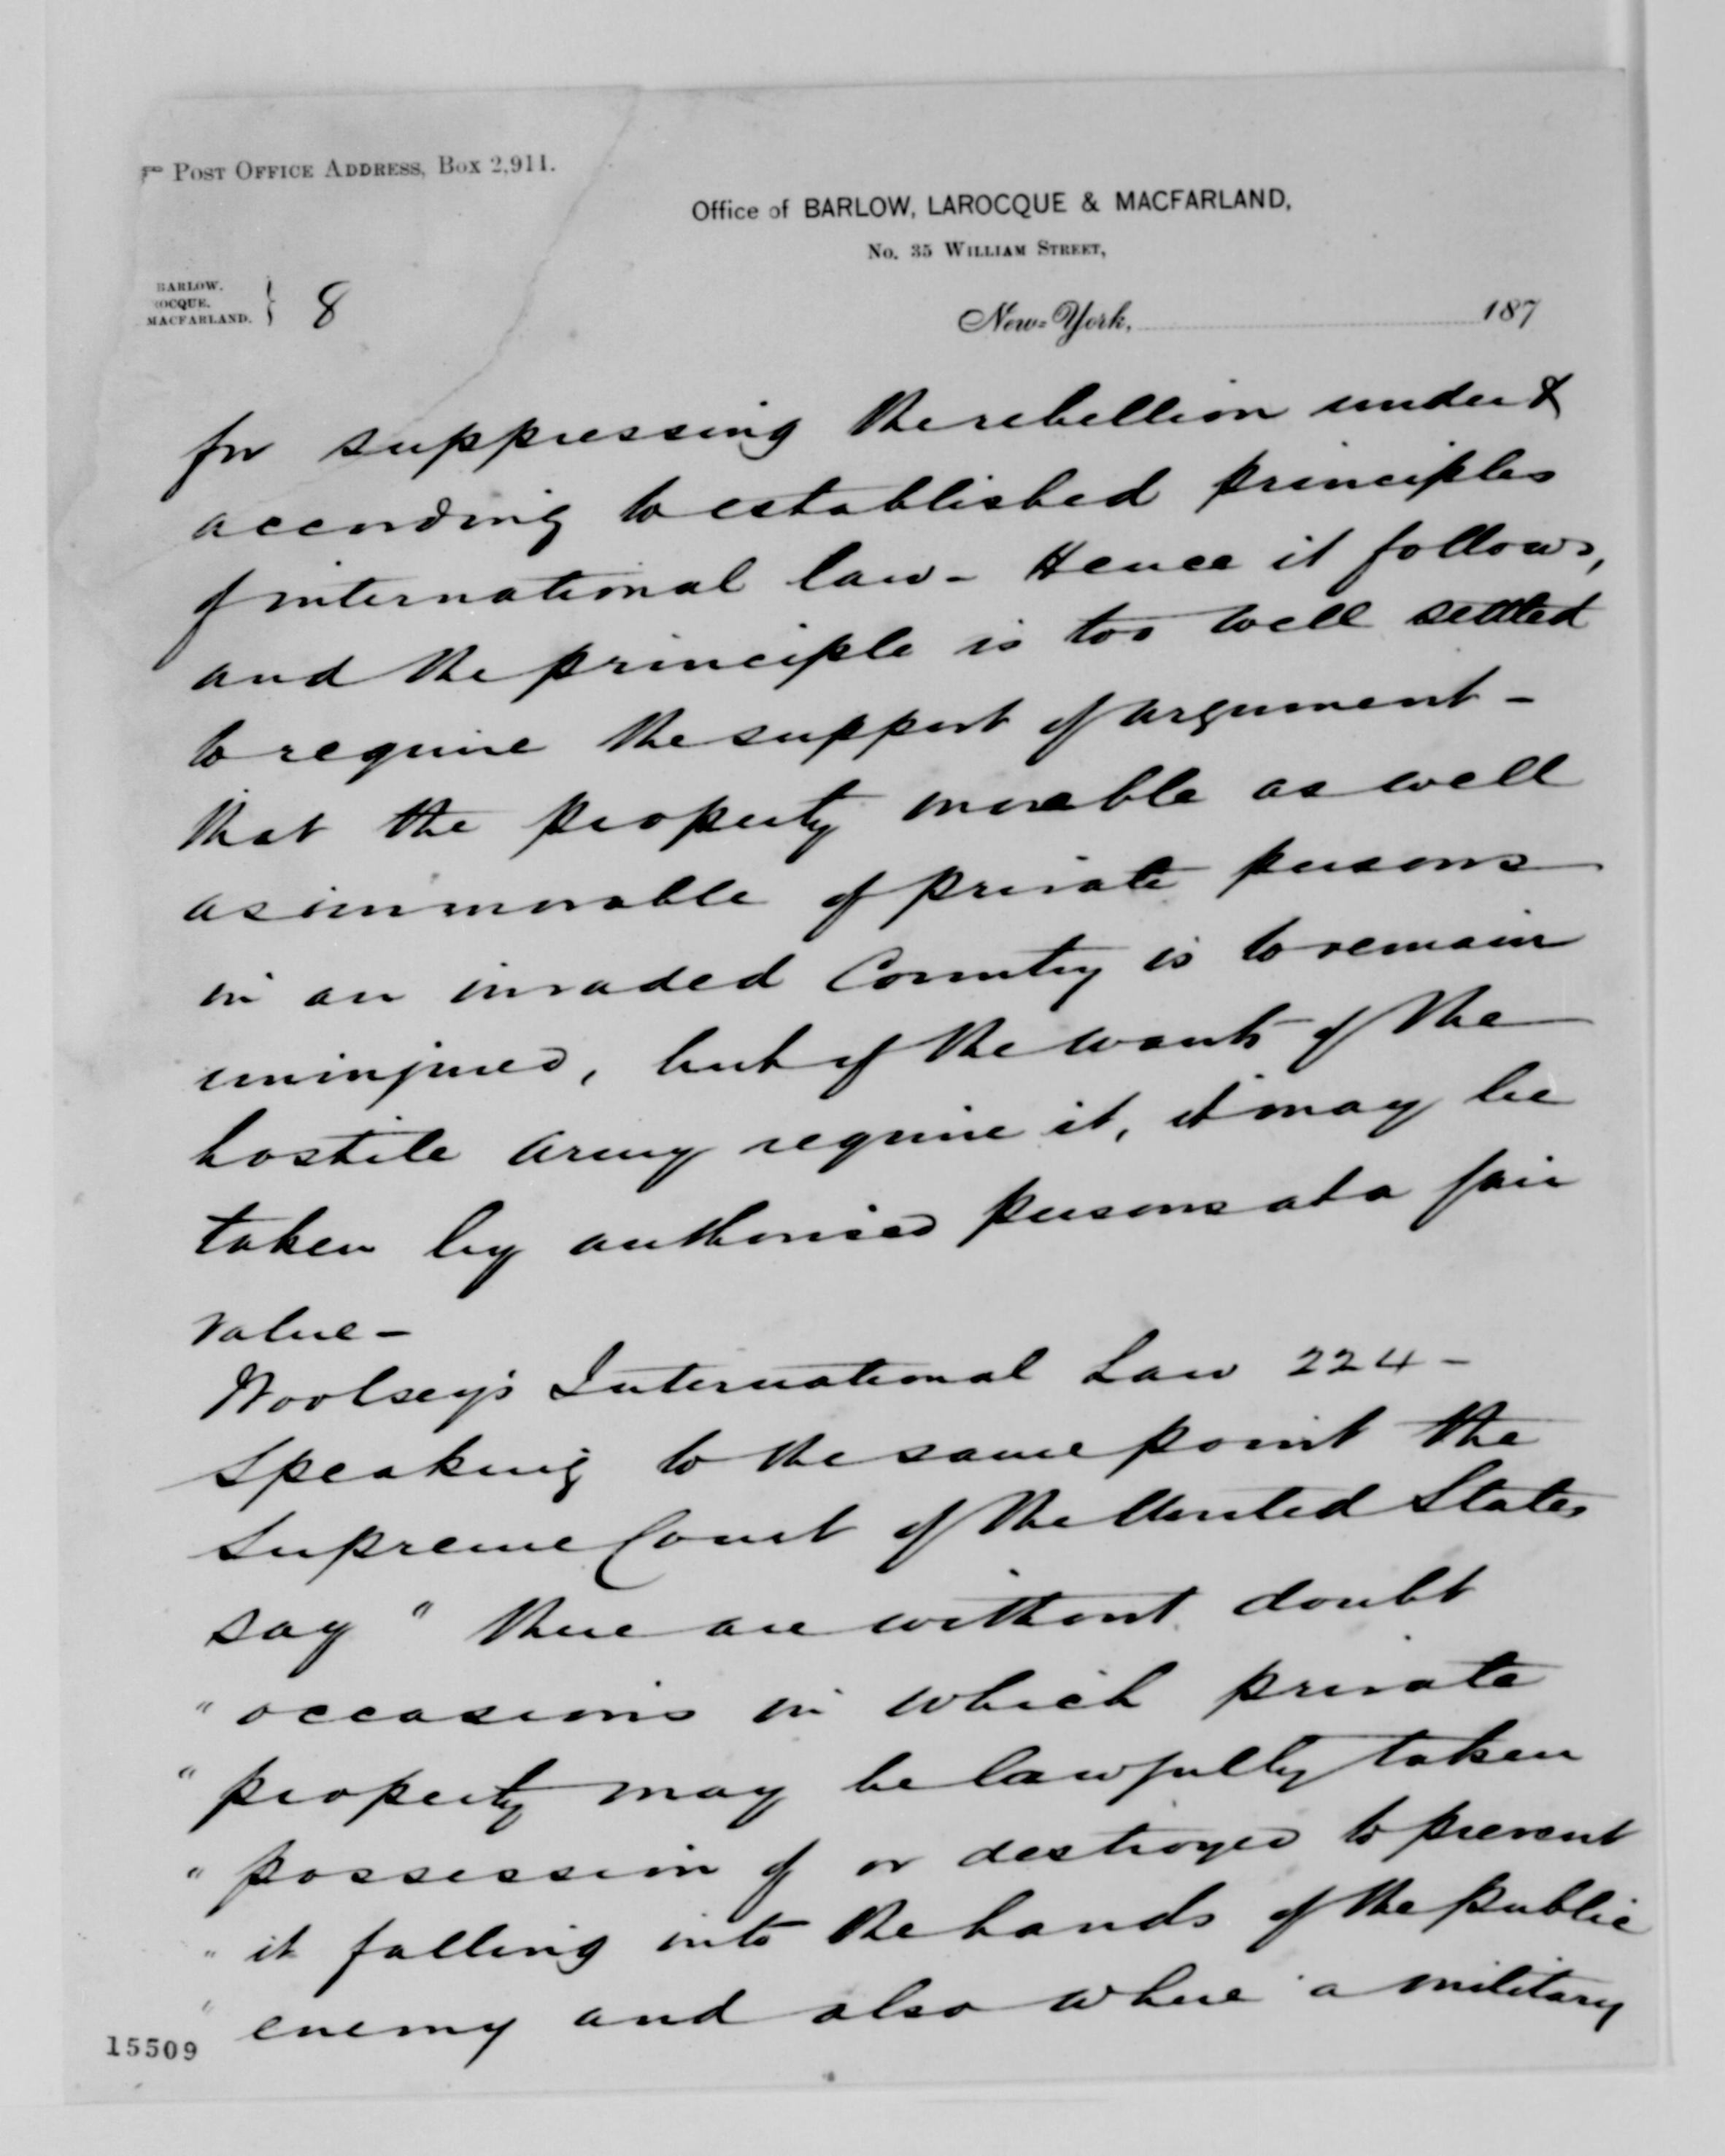 Post Office Address, Box 2,911.
Office of BARLOW, LAROCQUE & MACFARLAND,
No. 35 William Street,
BARLOW.
OCQUE.
MACFARLAND. } 8
New-York, 187
for suppressing the rebellion under &
according to established principles
of international law - Hence it follows,
and the principle is too well settled
to require the support of argument -
that the property movable as well
as immovable of private persons
in an invaded Country is to remain
uninjured, but if the wants of the
hostile army require it, it may be
taken by authorised persons at a fair
value -
Woolsey's International Law 224 -
Speaking to the same point the
Supreme Court of the United States
say " there are without doubt
" occasions in which private
" property may be lawfully taken
" possession of or destroyed to prevent
" it falling into the hands of the public
" enemy and also where a military
15509